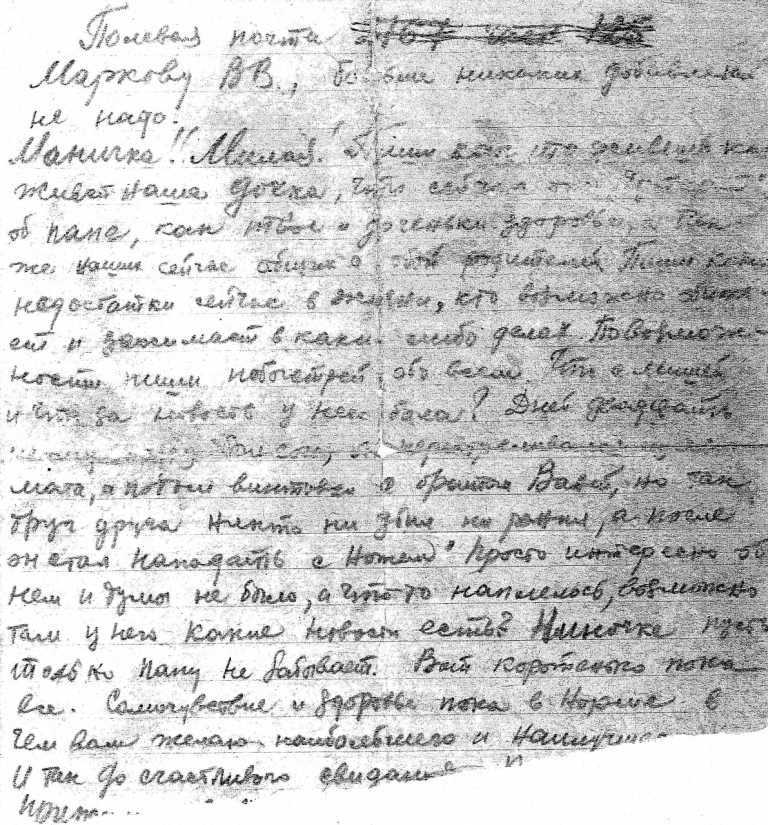 Полевая почта
Маркову ВВ., больше никаких добавлений
не надо.
Маничка!! Милая! Пиши как ты живешь как
живет наша дочка, что сейчас она
об папе, как твое и дочечки здоровье, а так
же наших сейчас общих твоих родителей Пиши какие
недостатки сейчас в жизни, кто возможно обижа-
ет и зажимает в каких либо делах По возмож-
ности пиши побыстрей, обо всем. Что с мишей
и что за новость у него была? Дней двадцать
сон,
мата, а потом винтовки с братом Васей, но так
друг друга никто ни убил ни ранил, а после
он стал нападать с ножем" Просто интересно об
нем и думы не было, а что то наплелось, возможно
там у него какие новости есть? Ниночке пусть
только папу не забывает. Вот коротенько пока
все. Самочувствие и здоровье пока в норме в
чем вам желаю наиболевшего и наилучшего
И так до счастливого свидания